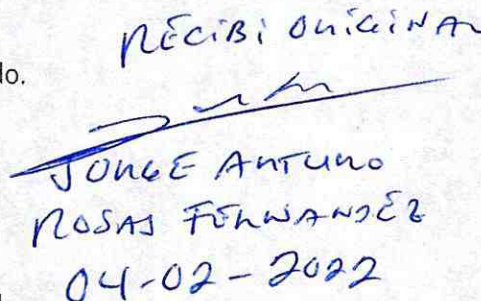 RECIBI ORIGINAL
do.
JORGE ARTURO
ROSAS FERNANDEZ
04-02-2022